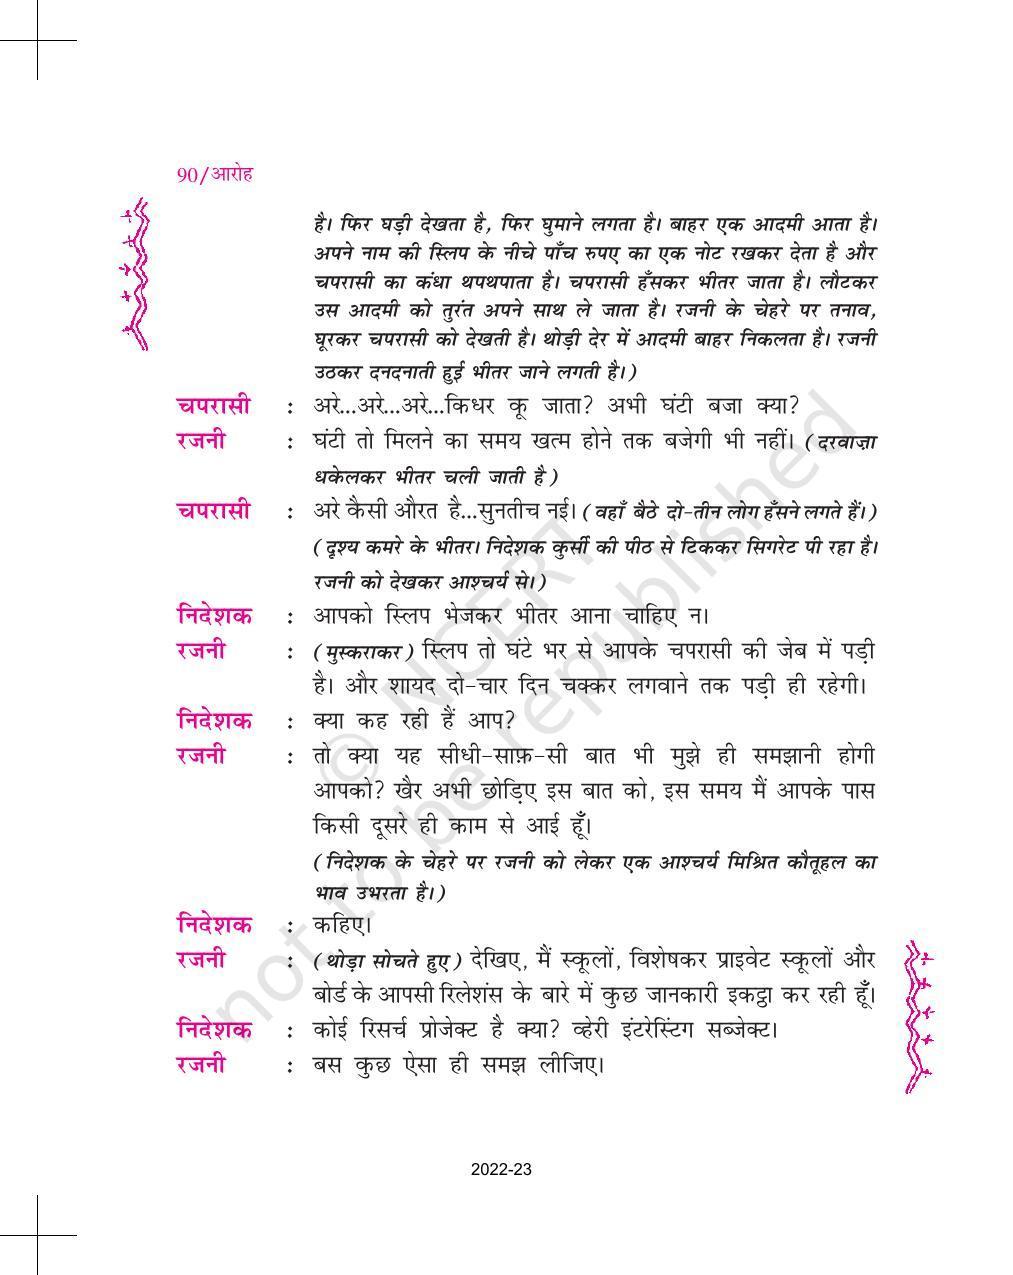 90/आरोह
है। फिर घड़ी देखता है, फिर घुमाने लगता है। बाहर एक आदमी आता है।
अपने नाम की स्लिप के नीचे पाँच रुपए का एक नोट रखकर देता है और
चपरासी का कंधा थपथपाता है। चपरासी हँसकर भीतर जाता है। लौटकर
उस आदमी को तुरंत अपने साथ ले जाता है। रजनी के चेहरे पर तनाव,
घूरकर चपरासी को देखती है। थोड़ी देर में आदमी बाहर निकलता है। रजनी
उठकर दनदनाती हुई भीतर जाने लगती है।)
चपरासी : अरे...अरे...अरे...किधर कू जाता? अभी घंटी बजा क्या?
रजनी : घंटी तो मिलने का समय खत्म होने तक बजेगी भी नहीं। (दरवाज़ा
धकेलकर भीतर चली जाती है)
चपरासी : अरे कैसी औरत है...सुनतीच नई। (वहाँ बैठे दो-तीन लोग हँसने लगते हैं।)
(दृश्य कमरे के भीतर। निदेशक कुर्सी की पीठ से टिककर सिगरेट पी रहा है।
रजनी को देखकर आश्चर्य से।)
निदेशक : आपको स्लिप भेजकर भीतर आना चाहिए न।
रजनी : (मुस्कराकर) स्लिप तो घंटे भर से आपके चपरासी की जेब में पड़ी
है। और शायद दो-चार दिन चक्कर लगवाने तक पड़ी ही रहेगी।
निदेशक : क्या कह रही हैं आप?
रजनी : तो क्या यह सीधी-साफ़-सी बात भी मुझे ही समझानी होगी
आपको? खैर अभी छोड़िए इस बात को, इस समय मैं आपके पास
किसी दूसरे ही काम से आई हूँ।
(निदेशक के चेहरे पर रजनी को लेकर एक आश्चर्य मिश्रित कौतूहल का
भाव उभरता है।)
निदेशक : कहिए।
रजनी : (थोड़ा सोचते हुए) देखिए, मैं स्कूलों, विशेषकर प्राइवेट स्कूलों और
बोर्ड के आपसी रिलेशंस के बारे में कुछ जानकारी इकट्ठा कर रही हूँ।
निदेशक : कोई रिसर्च प्रोजेक्ट है क्या? व्हेरी इंटरेस्टिंग सब्जेक्ट।
रजनी : बस कुछ ऐसा ही समझ लीजिए।
© NCERT
not to be republished
2022-23